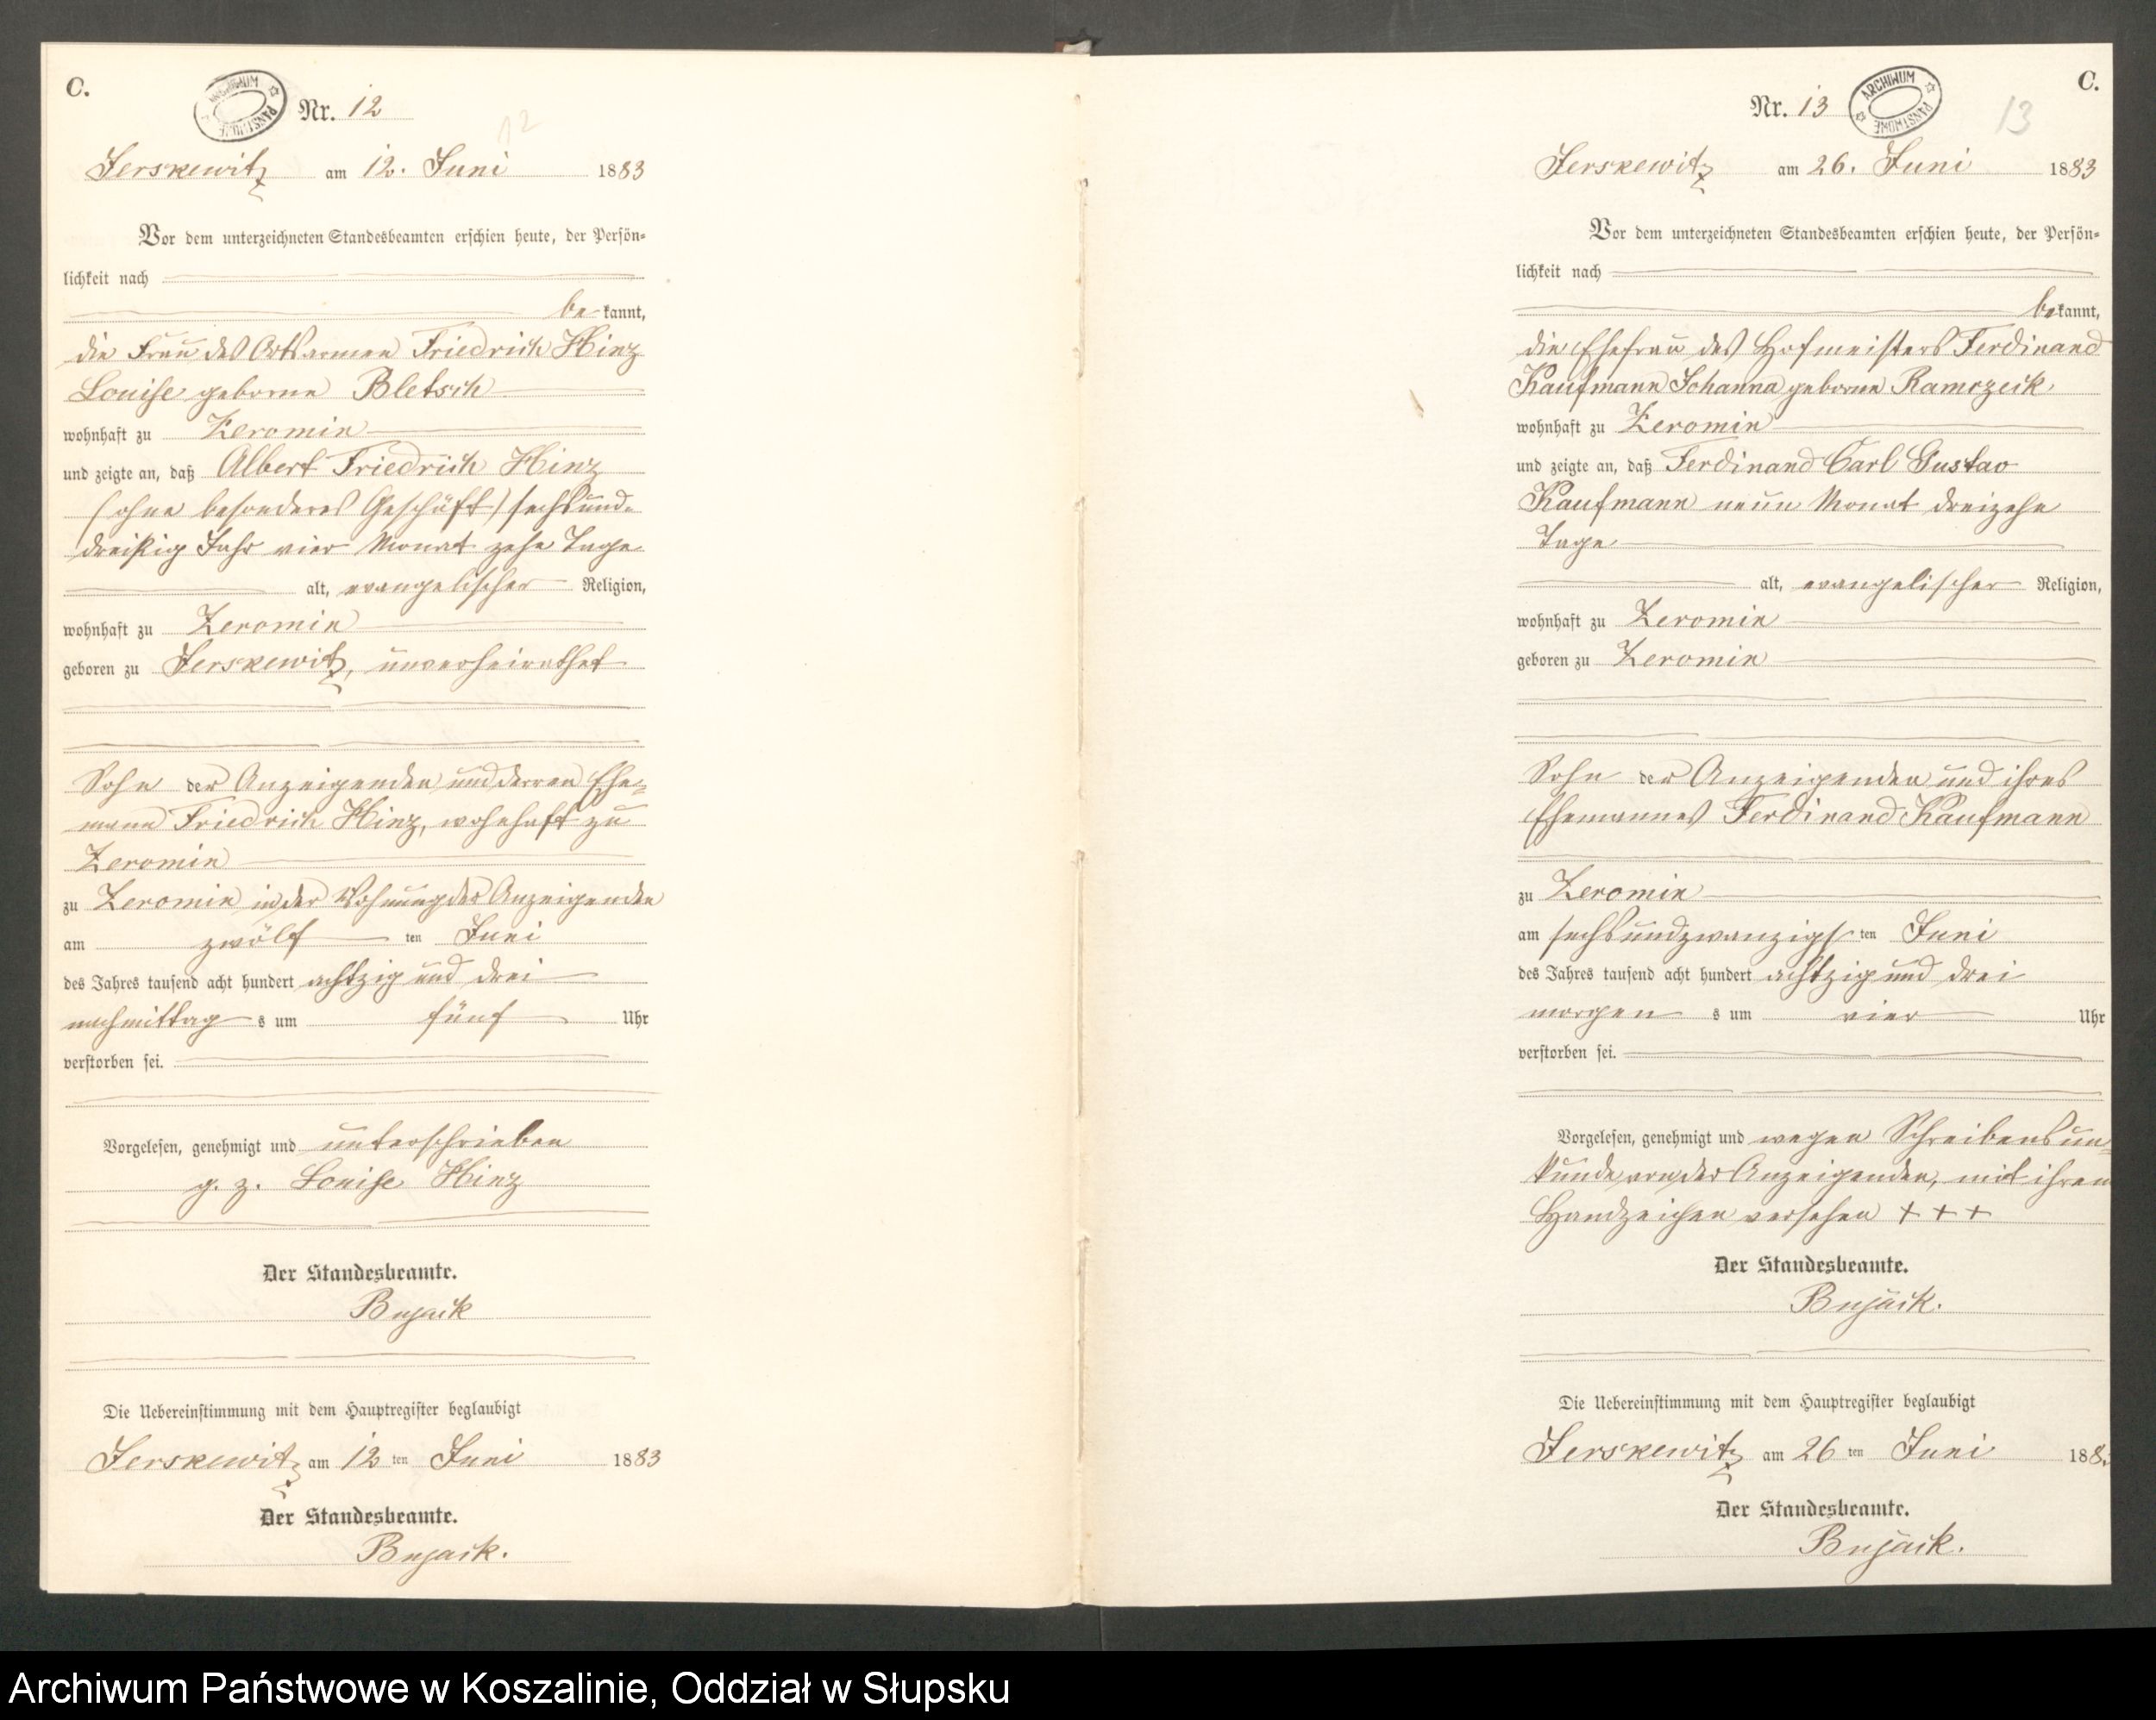 C.
Nr. 12
12
Jerskewitz am 12. Juni 1883
Vor dem unterzeichneten Standesbeamten erschien heute, der Persön-
lichkeit nach
be kannt,
die Frau des Ortsarmen Friedrich Hinz
Louise geborne Bletsch
wohnhaft zu Zeromin
und zeigte an, daß Albert Friedrich Hinz
(ohne besonderes Geschäft) sechsund-
dreißig Jahr vier Monat zehn Tage
alt, evangelischer Religion,
wohnhaft zu Zeromin
geboren zu Jerskewitz, unverheirathet
Sohn der Anzeigenden und derren Ehe-
mann Friedrich Hinz, wohnhaft zu
Zeromin
zu Zeromin in der Wohnung der Anzeigenden
am zwölf ten Juni
des Jahres tausend acht hundert achtzig und drei
nachmittag s um fünf Uhr
verstorben sei.
Vorgelesen, genehmigt und unterschrieben
g. z. Louise Hinz
Der Standesbeamte.
Bujack
Die Uebereinstimmung mit dem Hauptregister beglaubigt
Jerskewitz am 12 ten Juni 1883
Der Standesbeamte.
Bujack.
C.
Nr. 13
ARCHIWUM PAŃSTWOWE
13
Jerskewitz am 26. Juni 1883
Vor dem unterzeichneten Standesbeamten erschien heute, der Persön-
lichkeit nach
bekannt,
die Ehefrau des Hofmeisters Ferdinand
Kaufmann Johanna geborne Ramczeck
wohnhaft zu Zeromin
und zeigte an, daß Ferdinand Carl Gustav
Kaufmann neun Monat dreizehn
Tage
alt, evangelischer Religion,
wohnhaft zu Zeromin
geboren zu Zeromin
Sohn der Anzeigenden und ihres
Ehemannes Ferdinand Kaufmann
zu Zeromin
am sechsundzwanzigs ten Juni
des Jahres tausend acht hundert achtzig und drei
morgen s um vier Uhr
verstorben sei.
Vorgelesen, genehmigt und wegen Schreibensun-
kunde von der Anzeigenden, mit ihren
Handzeichen versehen + + +
Der Standesbeamte.
Bujack.
Die Uebereinstimmung mit dem Hauptregister beglaubigt
Jerskewitz am 26 ten Juni 188
Der Standesbeamte.
Bujack.
Archiwum Państwowe w Koszalinie, Oddział w Słupsku